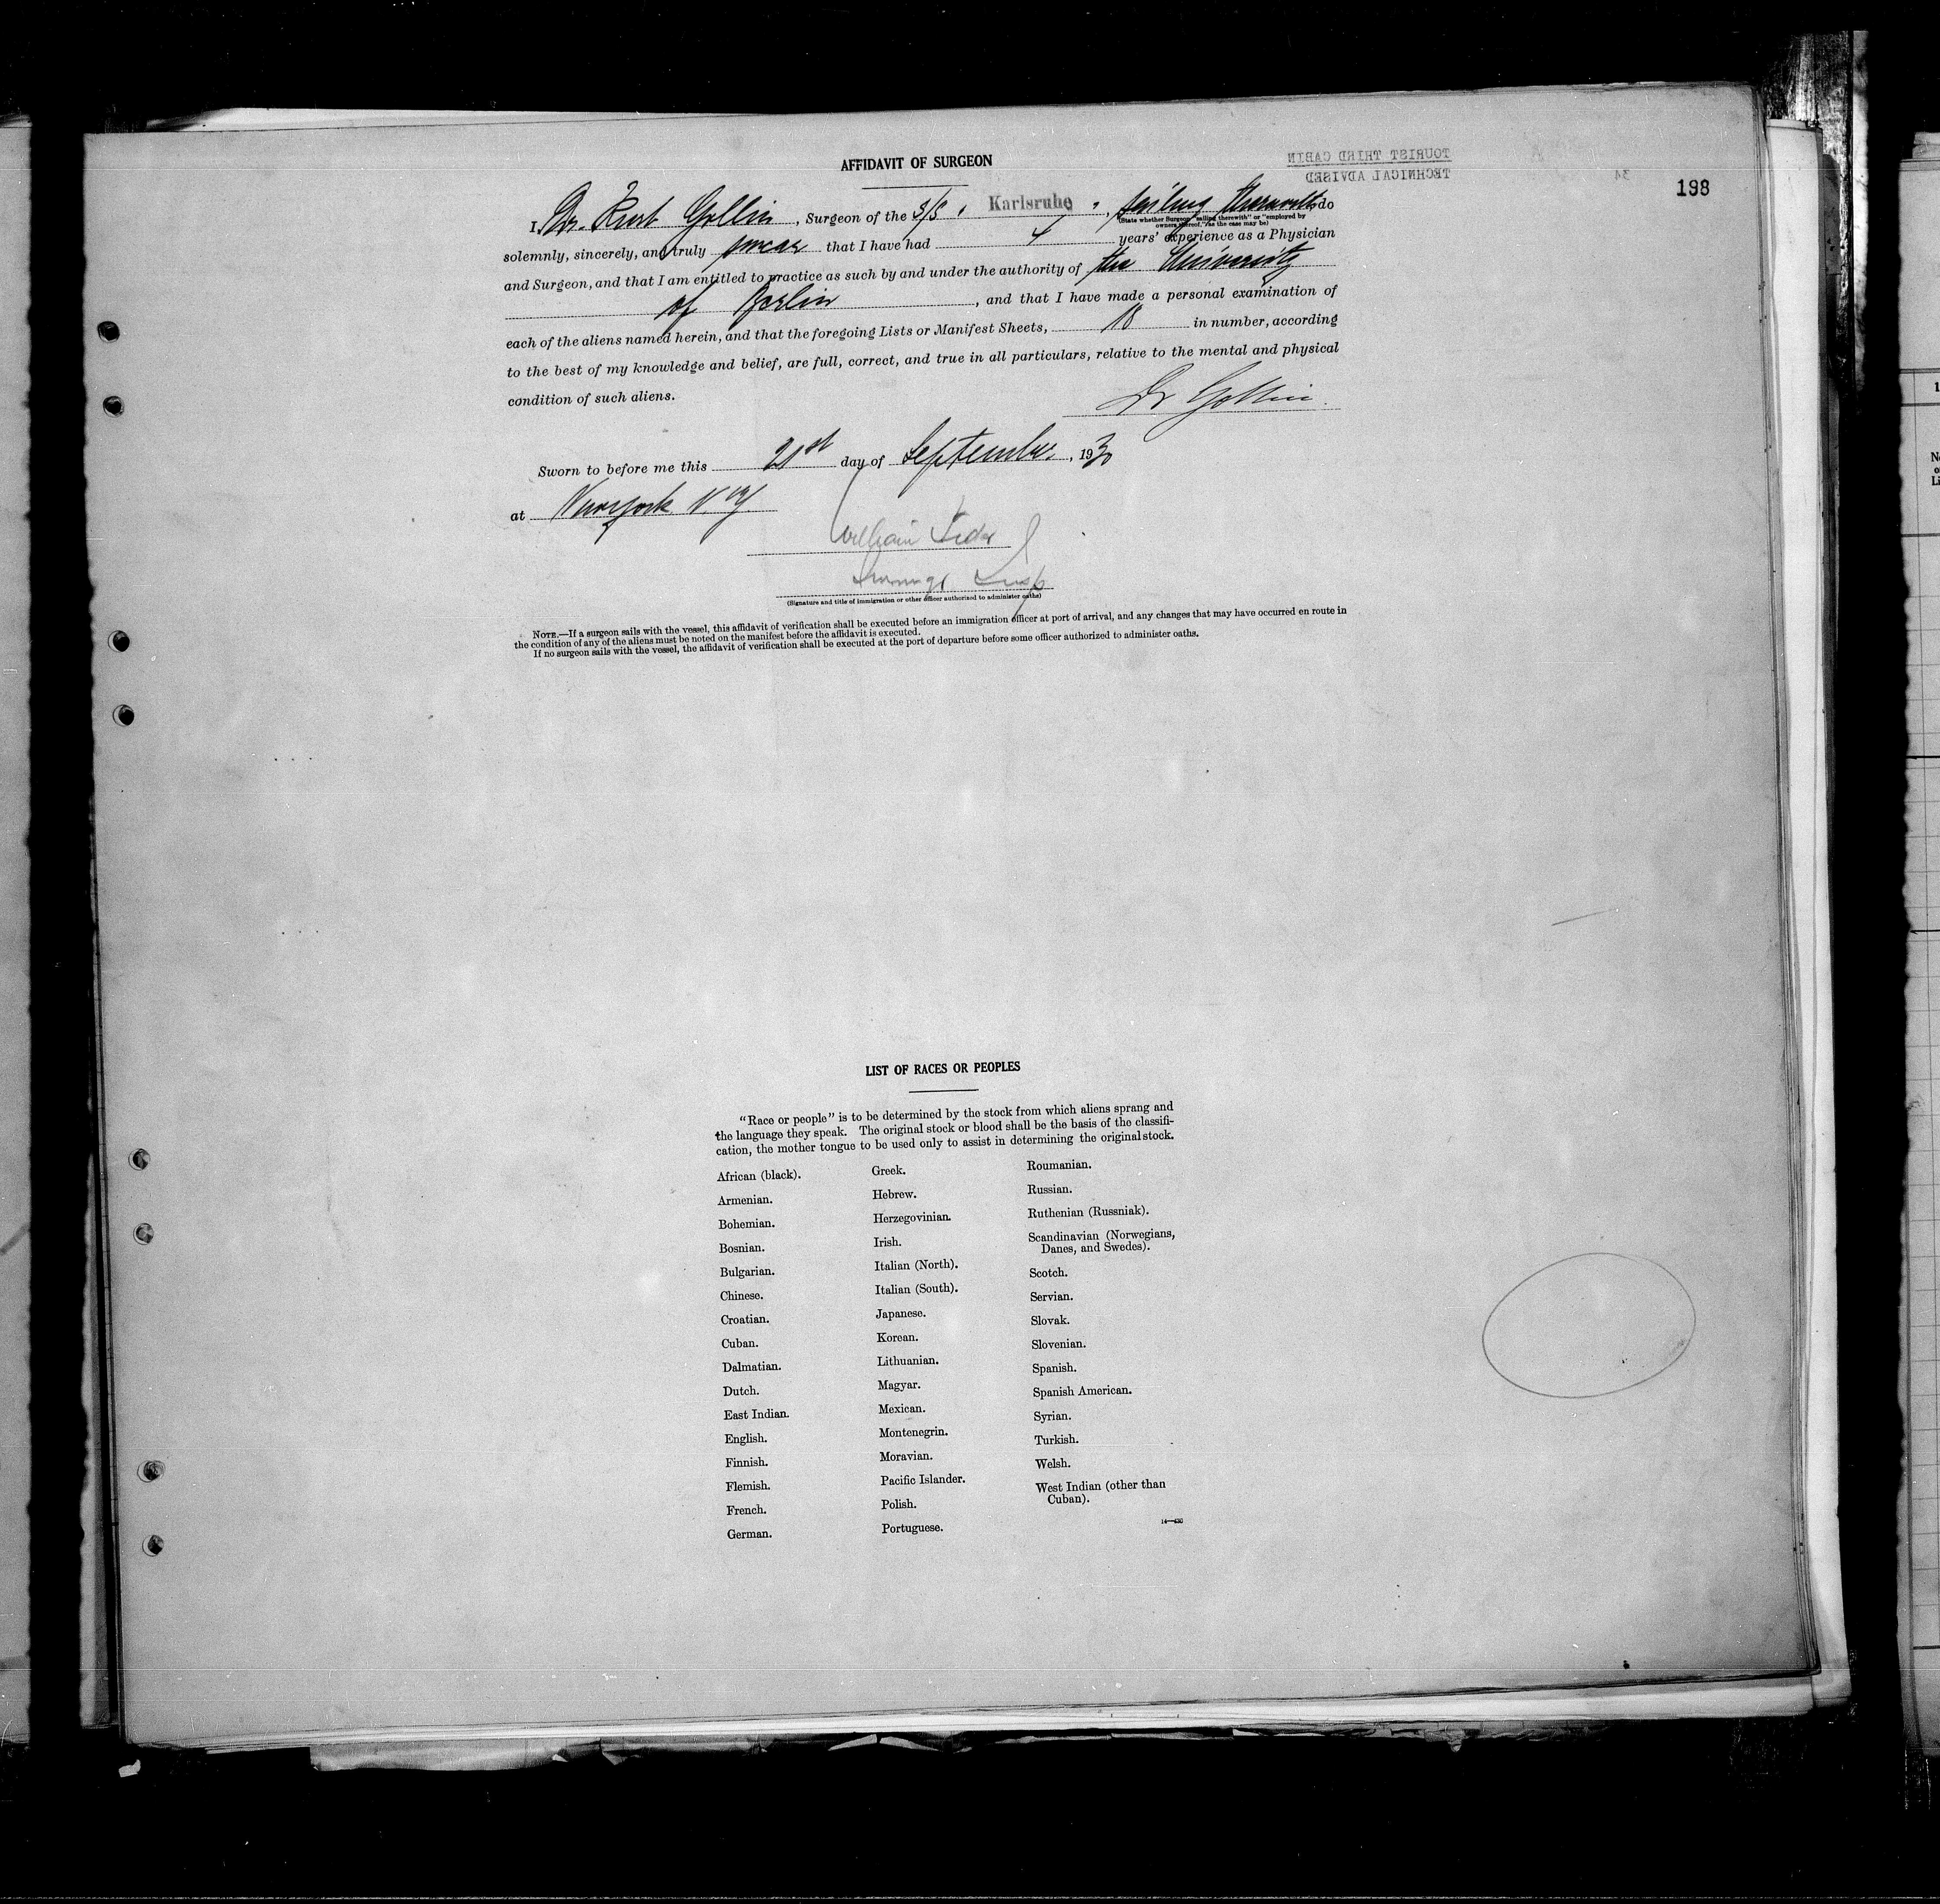 AFFIDAVIT OF SURGEON
TOURIST THIRD CABIN
TECHNICAL ADVISED
34
198
I, Dr. Kurt Gollin, Surgeon of the S/S " Karlsruhe ", sailing therewith, do
(State whether Surgeon "sailing therewith" or "employed by
owners thereof," as the case may be)
solemnly, sincerely, and truly swear that I have had 4 years' experience as a Physician
and Surgeon, and that I am entitled to practice as such by and under the authority of the University
of Berlin, and that I have made a personal examination of
each of the aliens named herein, and that the foregoing Lists or Manifest Sheets, 18 in number, according
to the best of my knowledge and belief, are full, correct, and true in all particulars, relative to the mental and physical
condition of such aliens.
Dr Gollin
Sworn to before me this 21st day of September, 1930
at Newyork N Y
William
Immigr. Insp
(Signature and title of immigration or other officer authorized to administer oaths)
NOTE.—If a surgeon sails with the vessel, this affidavit of verification shall be executed before an immigration officer at port of arrival, and any changes that may have occurred en route in
the condition of any of the aliens must be noted on the manifest before the affidavit is executed.
If no surgeon sails with the vessel, the affidavit of verification shall be executed at the port of departure before some officer authorized to administer oaths.
LIST OF RACES OR PEOPLES
"Race or people" is to be determined by the stock from which aliens sprang and
the language they speak. The original stock or blood shall be the basis of the classifi-
cation, the mother tongue to be used only to assist in determining the original stock.
African (black).
Armenian.
Bohemian.
Bosnian.
Bulgarian.
Chinese.
Croatian.
Cuban.
Dalmatian.
Dutch.
East Indian.
English.
Finnish.
Flemish.
French.
German.
Greek.
Hebrew.
Herzegovinian.
Irish.
Italian (North).
Italian (South).
Japanese.
Korean.
Lithuanian.
Magyar.
Mexican.
Montenegrin.
Moravian.
Pacific Islander.
Polish.
Portuguese.
Roumanian.
Russian.
Ruthenian (Russniak).
Scandinavian (Norwegians,
Danes, and Swedes).
Scotch.
Servian.
Slovak.
Slovenian.
Spanish.
Spanish American.
Syrian.
Turkish.
Welsh.
West Indian (other than
Cuban).